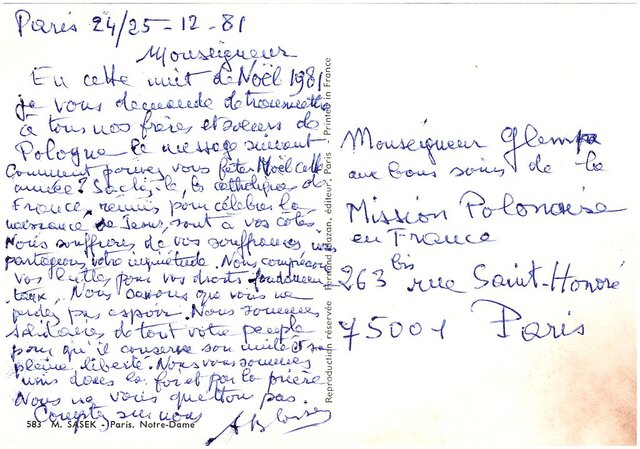 Paris 24/25-12-81
Monseigneur
En cette nuit de Noël 1981
je vous demande de transmettre
à tous nos frères et soeurs de
Pologne le message suivant
Comment pouvez vous fêter Noël cette
année? Sachez le, les catholiques de
France, réunis pour célébrer la
naissance de Jesus, sont à vos côtés.
Nous souffrons de vos souffrances nous
partageons votre inquiétude. Nous comprenons
vos luttes pour vos droits fondamen-
taux. Nous savons que vous ne
perdez pas espoir. Nous sommes
solidaires de tout votre peuple
pour qu'il conserve son unité et sa
pleine liberté. Nous vous sommes
unis dans la foi et par la prière
Nous ne vous quittons pas.
Comptez sur nous
583 M. SASEK - Paris. Notre-Dame
Reproduction réservée Fernand Hazan, éditeur, Paris - Printed in France
Monseigneur Glemp
aux bons soins de la
Mission Polonaise
en France
263 bis rue Saint-Honoré
75001 Paris